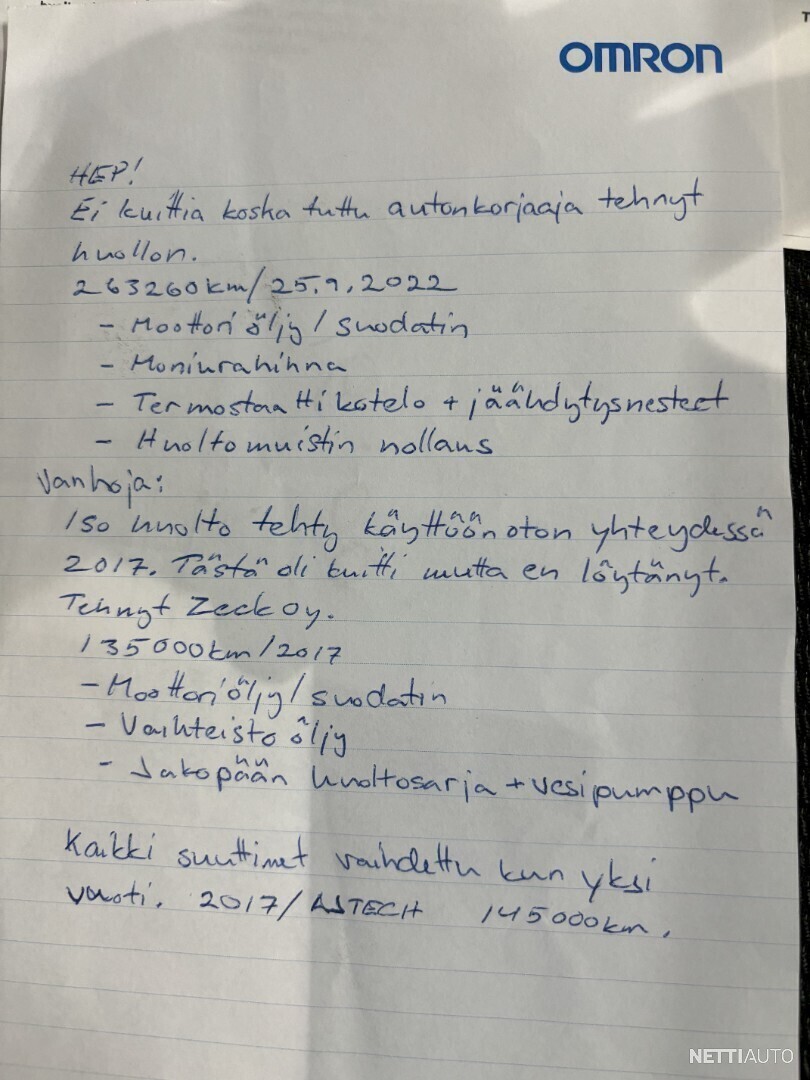 OMRON
HEP!
Ei kuittia koska tuttu autonkorjaaja tehnyt
huollon.
263260km/25.9.2022
- Moottoriöljy/suodatin
- Moniurahihna
- Termostaattikotelo + jäähdytysnesteet
- Huoltomuistin nollaus
Vanhoja:
Iso huolto tehty käyttöönoton yhteydessä
2017. Tästä oli kuitti mutta en löytänyt.
Tehnyt Zeck oy.
135000km/2017
- Moottoriöljy/suodatin
- Vaihteistoöljy
- Jakopään huoltosarja + vesipumppu
Kaikki suuttimet vaihdettu kun yksi
vuoti. 2017/ASTECH 145000km.
NETTIAUTO